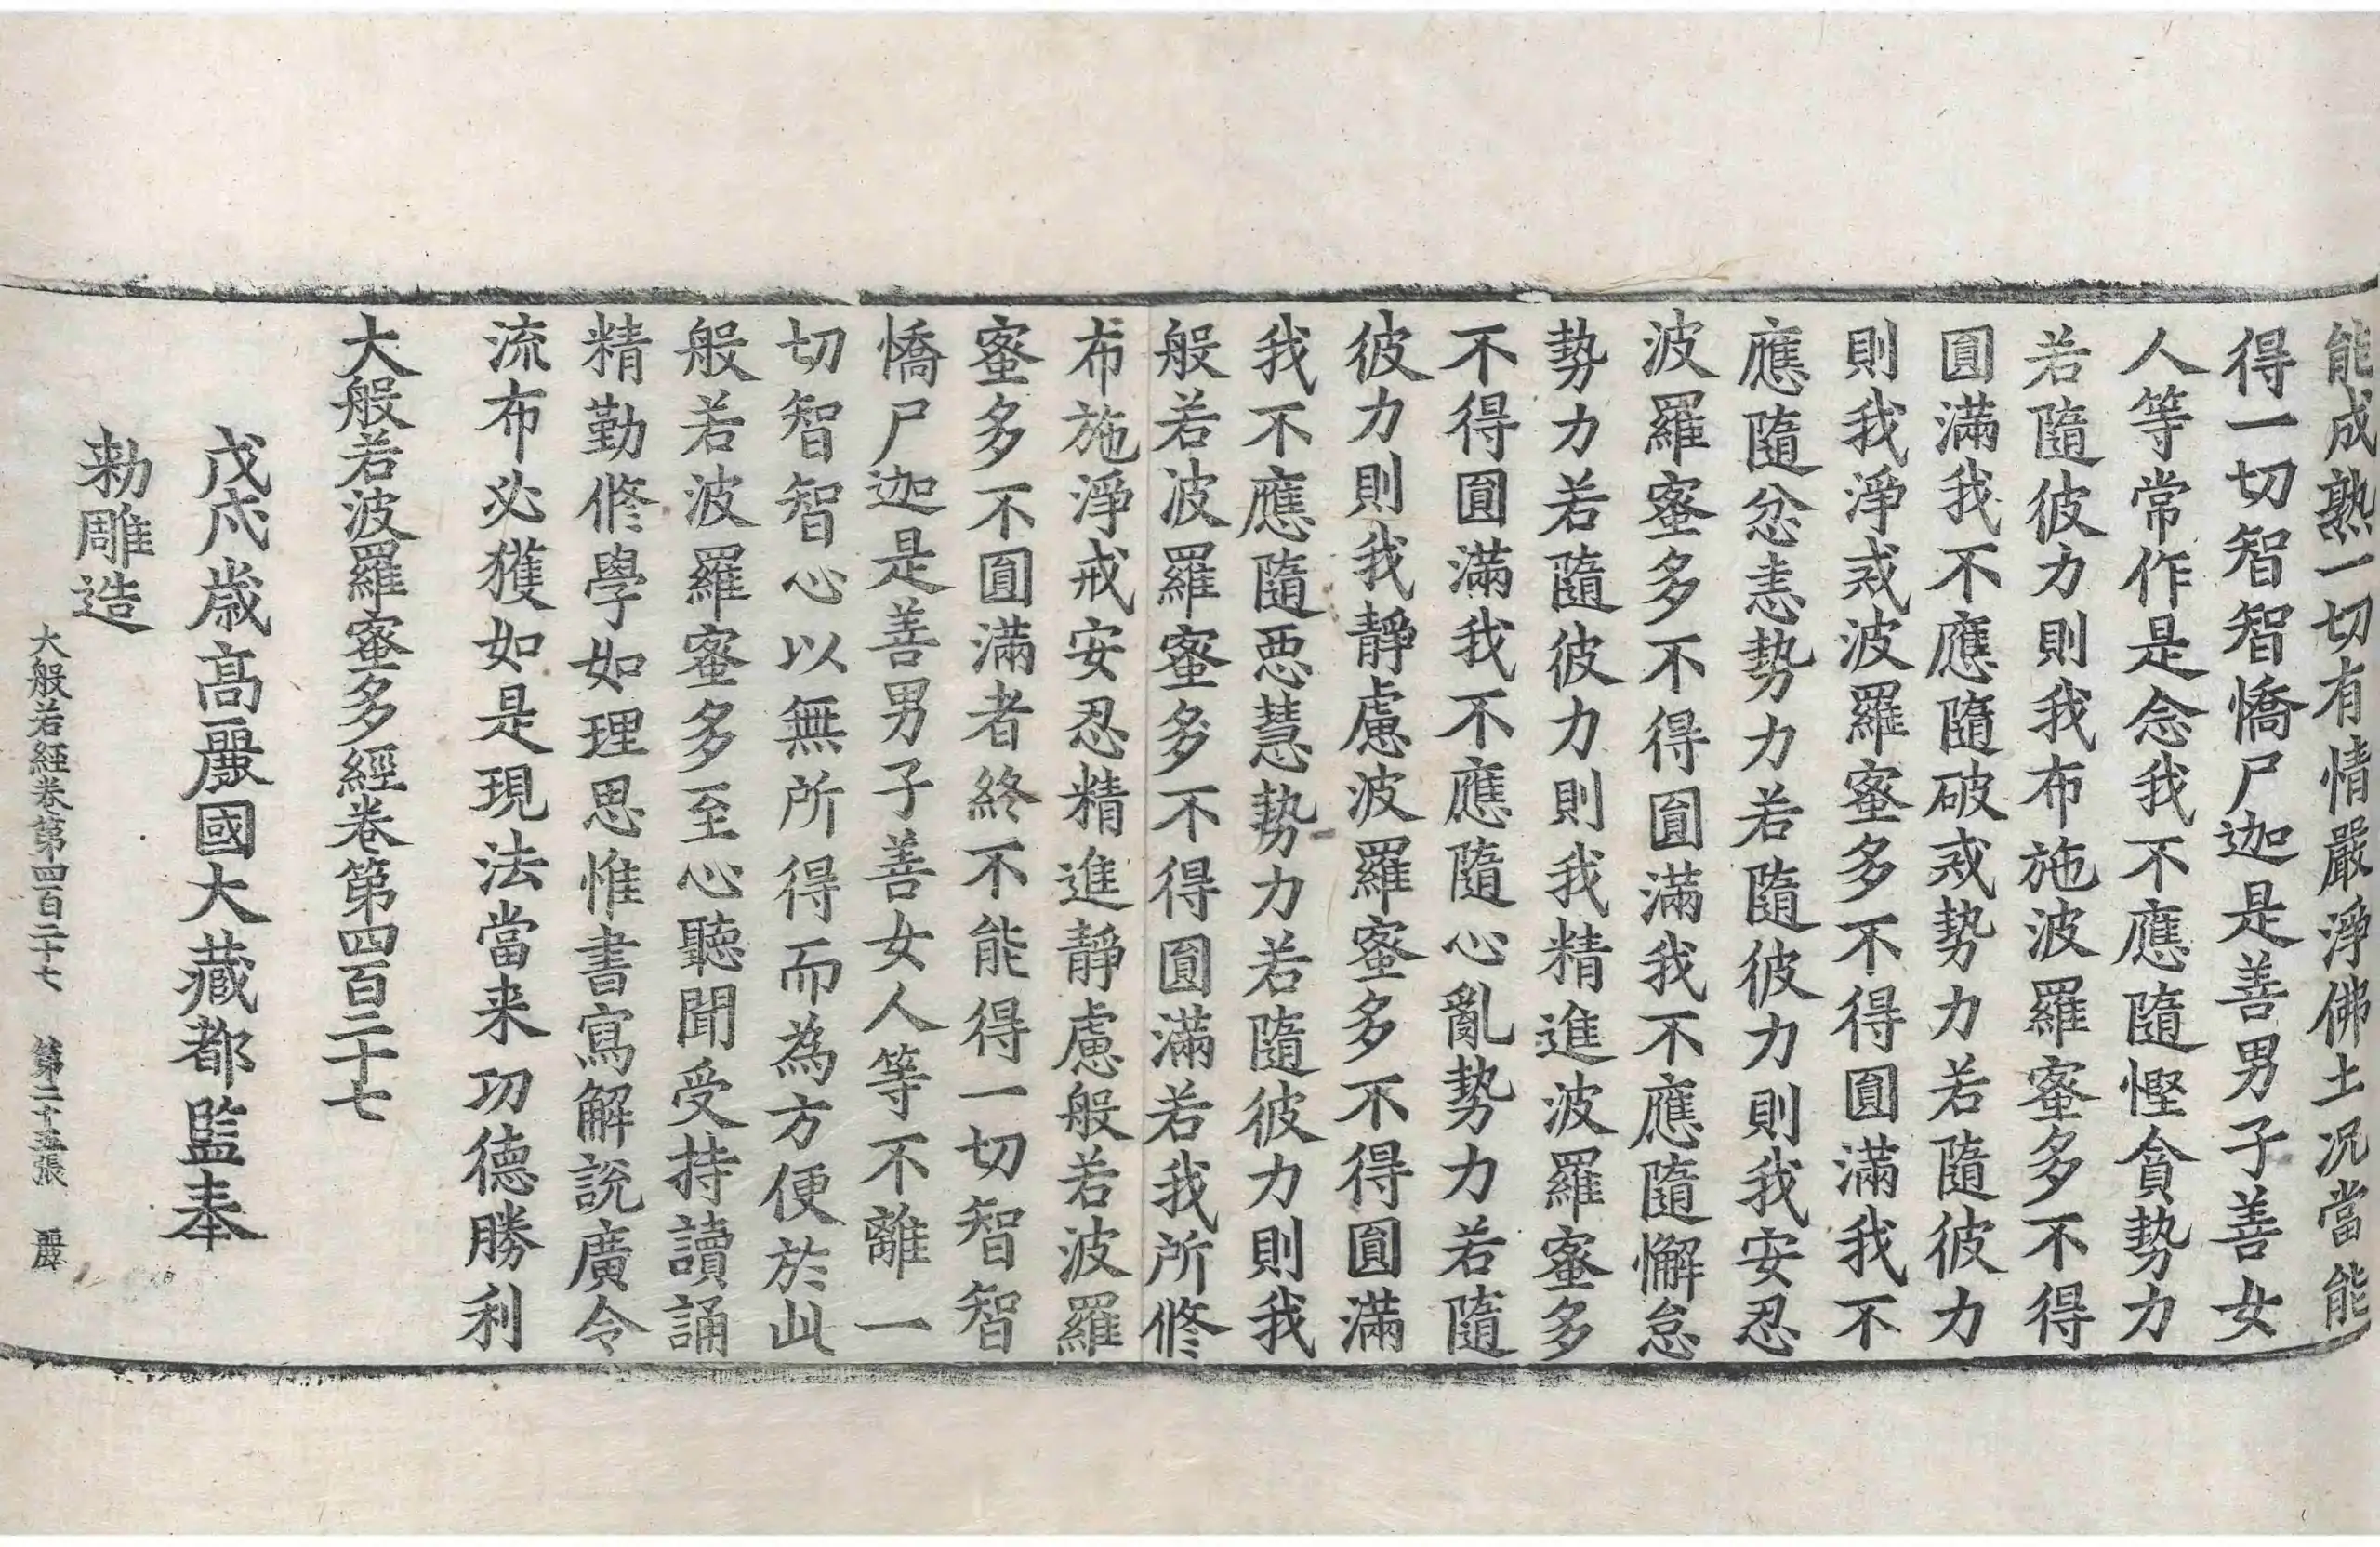 能成熟一切有情嚴淨佛土况當能
得一切智智憍尸迦是善男子善女
人等常作是念我不應隨慳貪勢力
若隨彼力則我布施波羅蜜多不得
圓滿我不應隨破戒勢力若隨彼力
則我淨戒波羅蜜多不得圓滿我不
應隨忿恚勢力若隨彼力則我安忍
波羅蜜多不得圓滿我不應隨懈怠
勢力若隨彼力則我精進波羅蜜多
不得圓滿我不應隨心亂勢力若隨
彼力則我靜慮波羅蜜多不得圓滿
我不應隨惡慧勢力若隨彼力則我
般若波羅蜜多不得圓滿若我所修
布施淨戒安忍精進靜慮般若波羅
蜜多不圓滿者終不能得一切智智
憍尸迦是善男子善女人等不離一
切智智心以無所得而為方便於此
般若波羅蜜多至心聽聞受持讀誦
精勤修學如理思惟書寫解說廣令
流布必獲如是現法當来功德勝利
大般若波羅蜜多經卷第四百二十七
戊戌歲高麗國大藏都監奉
勅雕造
大般若経卷第四百二十七 第二十五張 麗